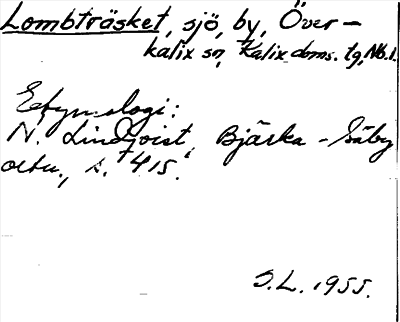 Lombträsket, sjö, by, Över-
kalix sn, Kalix doms. tg, Nb. l.
Etymologi:
N. Lindqvist, Bjärka-Säby
ortn., s. 415.
S.L. 1955.